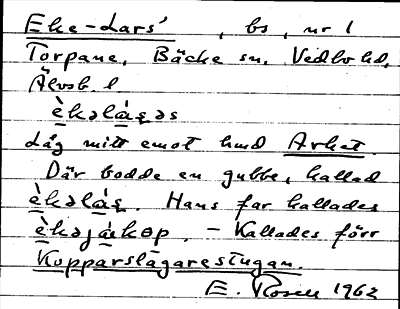 Eke-Lars' , bs, nr 1
Torpane, Bäcke sn, Vedbo hd,
Älvsb. l
è̱kəlá̱s̱əs
Låg mitt emot hmd Arket.
Där bodde en gubbe, kallad
è̱kəlá̱s̱. Hans far kallades
è̱kəjá̱kɵp. – Kallades förr
Kopparslagarestugan.
E. Rosell 1962